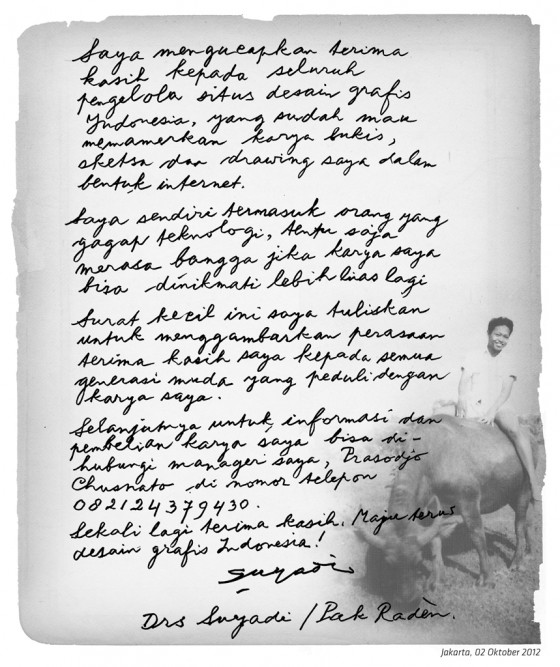 Saya mengucapkan terima
kasih kepada seluruh
pengelola situs desain grafis
Indonesia, yang sudah mau
memamerkan karya lukis,
sketsa dan drawing saya dalam
bentuk internet.
Saya sendiri termasuk orang yang
gagap teknologi, tentu saja
merasa bangga jika karya saya
bisa dinikmati lebih luas lagi
Surat kecil ini saya tuliskan
untuk menggambarkan perasaan
terima kasih saya kepada semua
generasi muda yang peduli dengan
karya saya.
Selanjutnya untuk informasi dan
pembelian karya saya bisa di-
hubungi manager saya, Prasodjo
Chusnato di nomor telepon
082124379430.
Sekali lagi terima kasih. Maju terus
desain grafis Indonesia!
Suyadi
Drs Suyadi / Pak Radèn.
Jakarta, 02 Oktober 2012